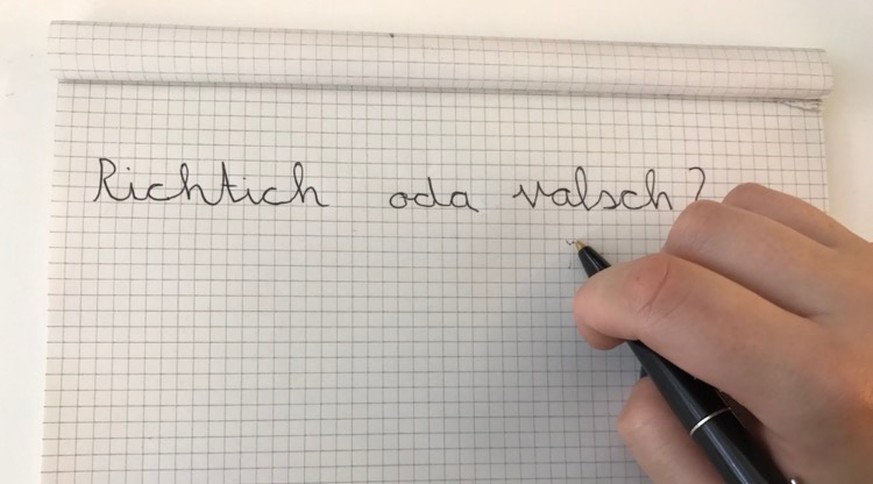 Richtich oda valsch?